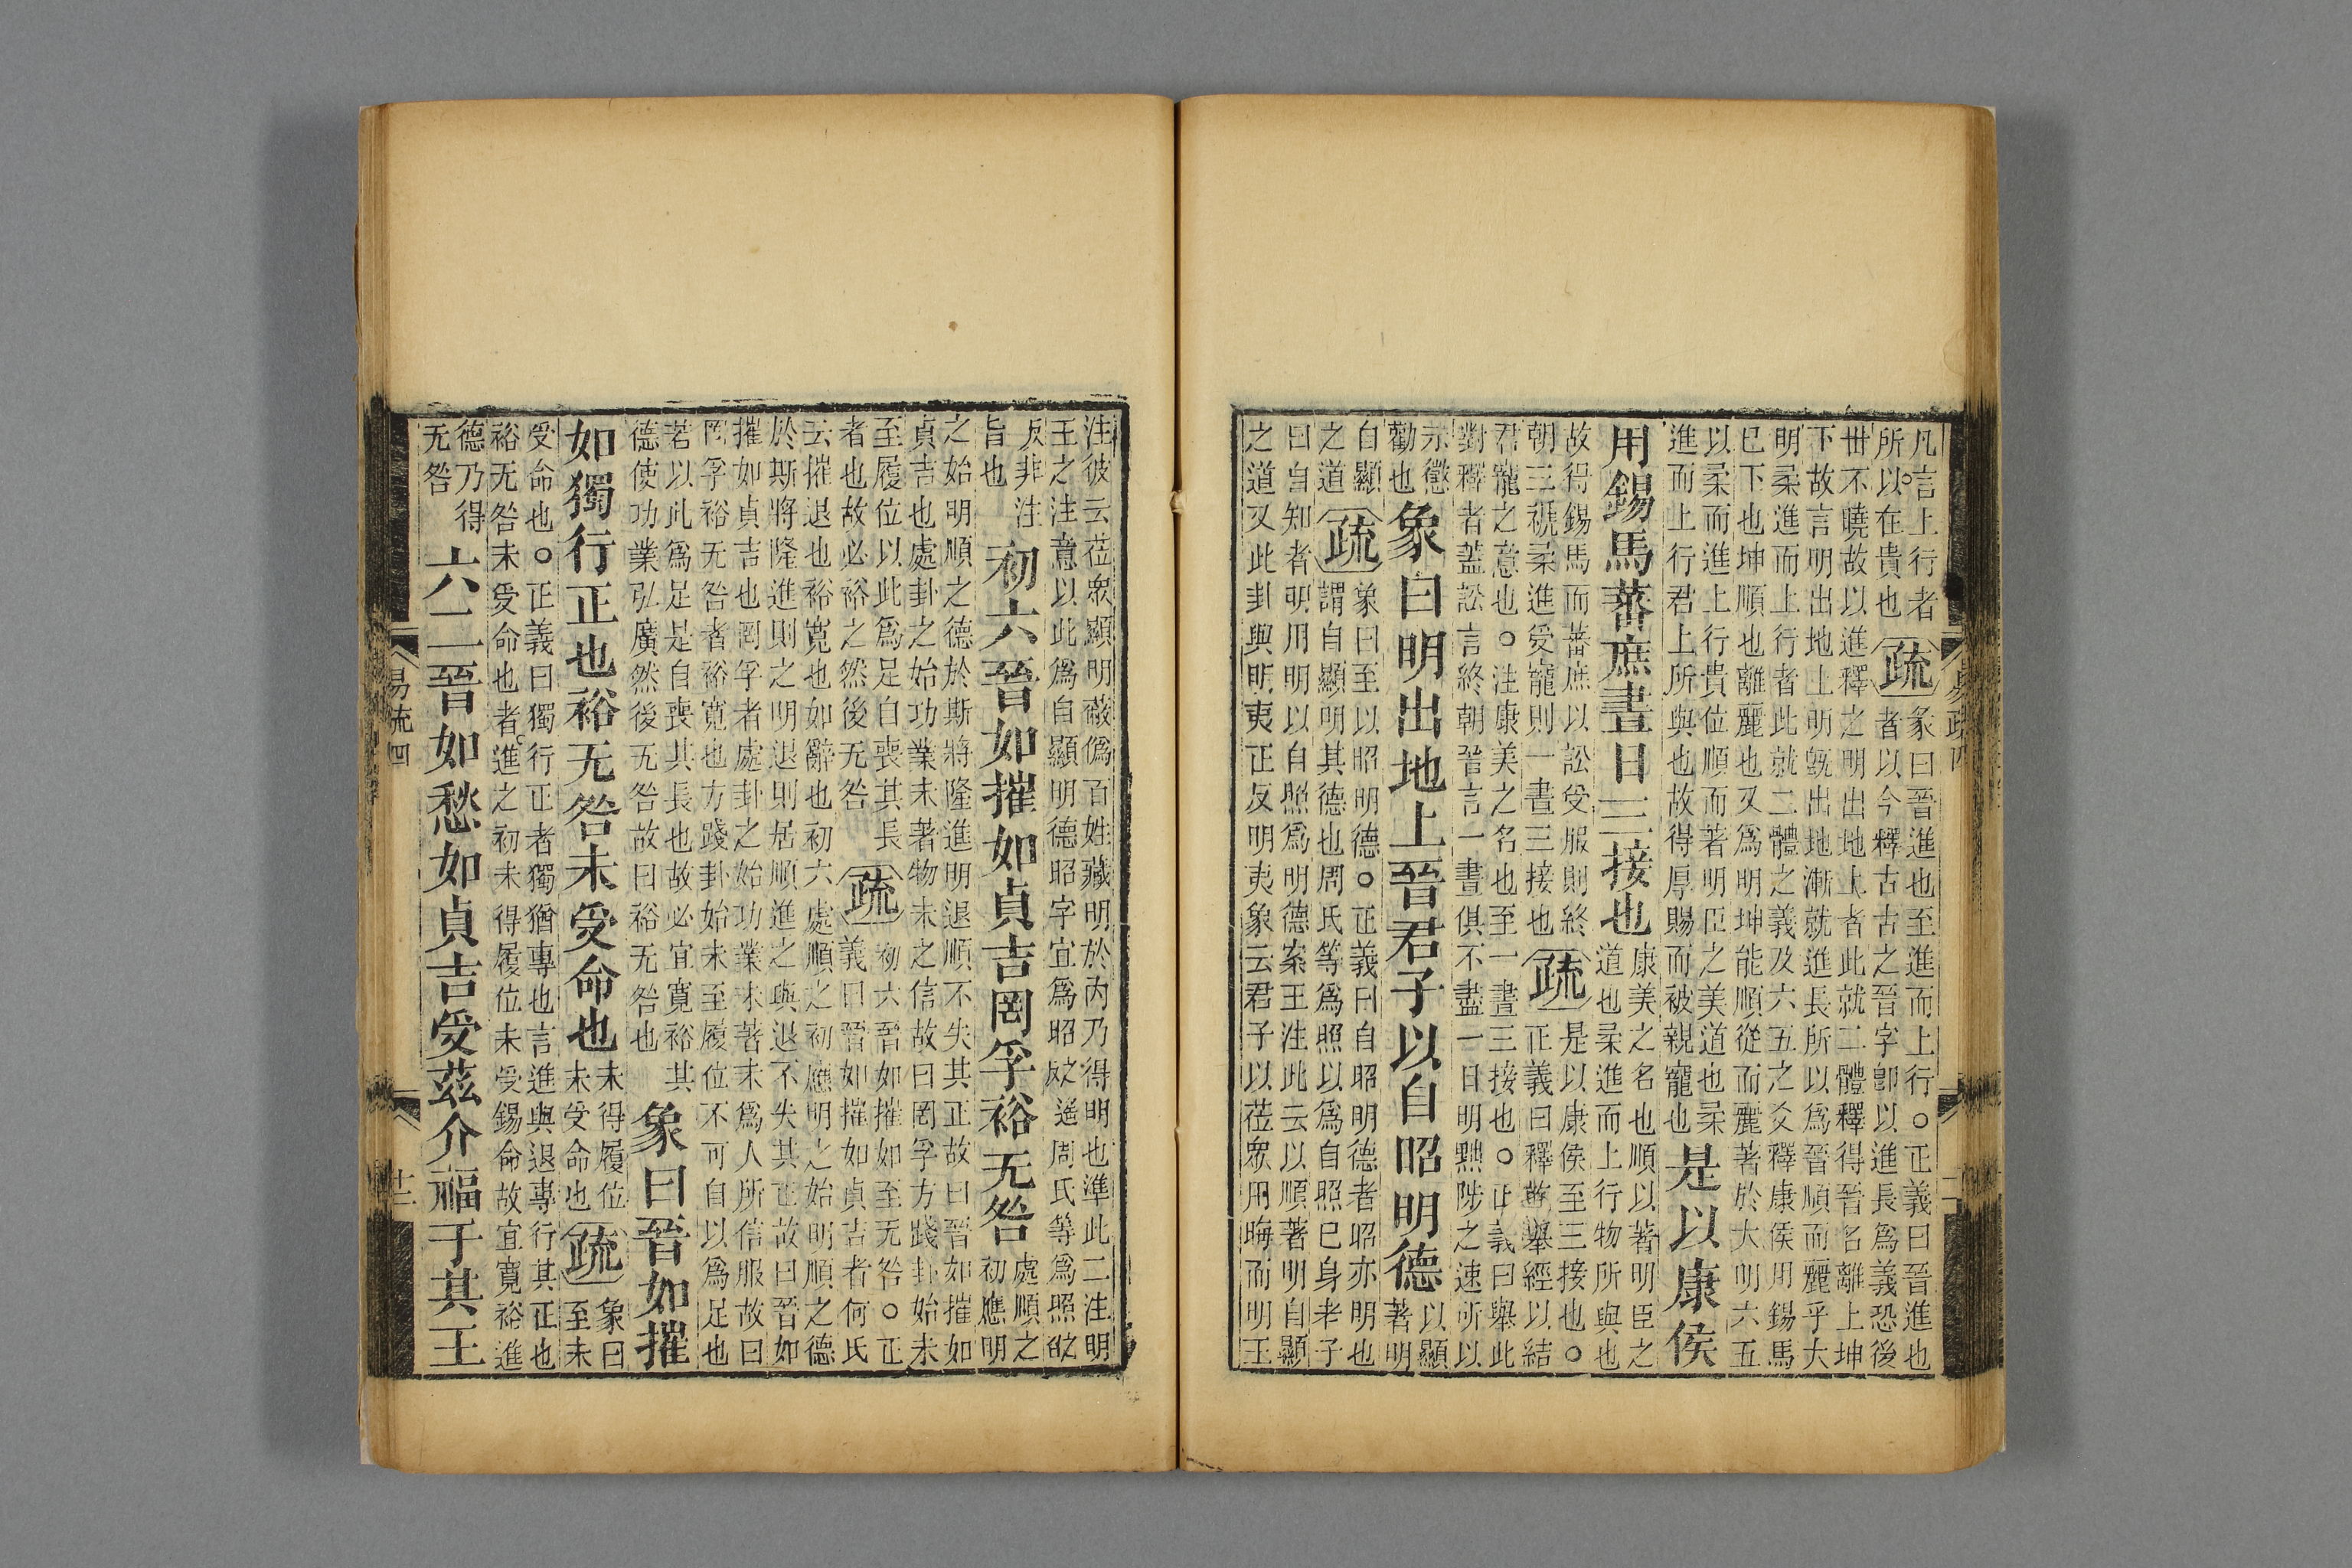 凡言上行者疏彖曰晉進也至進而上行○正義曰晉進也
所以在貴也者以今釋古古之晉字卽以進長爲義恐後
世不曉故以進釋之明出地上者此就二體釋得晉名離上坤
下故言明出地上明旣出地漸就進長所以爲晉順而麗乎大
明柔進而上行者此就二體之義及六五之爻釋康侯用錫馬
已下也坤順也離麗也又爲明坤能順從而麗著於大明六五
以柔而進上行貴位順而著明臣之美道也柔
進而上行君上所與也故得厚賜而被親寵也
是以康侯
用錫馬蕃庶晝日三接也
康美之名也順以著明臣之
道也柔進而上行物所與也
故得錫馬而蕃庶以訟受服則終
朝三褫柔進受寵則一晝三接也
疏
是以康侯至三接也○
正義曰釋訖舉經以結
君寵之意也○注康美之名也至一晝三接也○正義曰舉此
對釋者蓋訟言終朝晉言一晝俱不盡一日明黜陟之速所以
示懲
勸也
象曰明出地上晉君子以自昭明德
以顯
著明
自顯
之道
疏
象曰至以昭明德○正義曰自昭明德者昭亦明也
謂自顯明其德也周氏等爲照以爲自照已身老子
曰自知者明用明以自照爲明德案王注此云以順著明自顯
之道又此卦與明夷正反明夷象云君子以莅衆用晦而明王
注彼云莅衆顯明蔽僞百姓藏明於內乃得明也準此二注明
王之注意以此爲自顯明德昭字宜爲昭之遙反周氏等爲照之召
反非注
旨也
初六晉如摧如貞吉罔孚裕无咎
處順之
初應明
之始明順之德於斯將隆進明退順不失其正故曰晉如摧如
貞吉也處卦之始功業未著物未之信故曰罔孚方踐卦始未
至履位以此爲足自喪其長
者也故必裕之然後无咎
疏
初六晉如摧如至无咎○正
義曰晉如摧如貞吉者何氏
云摧退也裕寬也如辭也初六處順之初應明之始明順之德
於斯將隆進則之明退則居順進之與退不失其正故曰晉如
摧如貞吉也罔孚者處卦之始功業未著未爲人所信服故曰
罔孚裕无咎者裕寬也方踐卦始未至履位不可自以爲足也
若以此爲足是自喪其長也故必宜寬裕其
德使功業弘廣然後无咎故曰裕无咎也
象曰晉如摧
如獨行正也裕无咎未受命也
未得履位
未受命也
疏
象曰
至未
受命也○正義曰獨行正者獨猶專也言進與退專行其正也
裕无咎未受命也者進之初未得履位未受錫命故宜寬裕進
德乃得
无咎
六二晉如愁如貞吉受茲介福于其王
易疏四
十二
易疏四